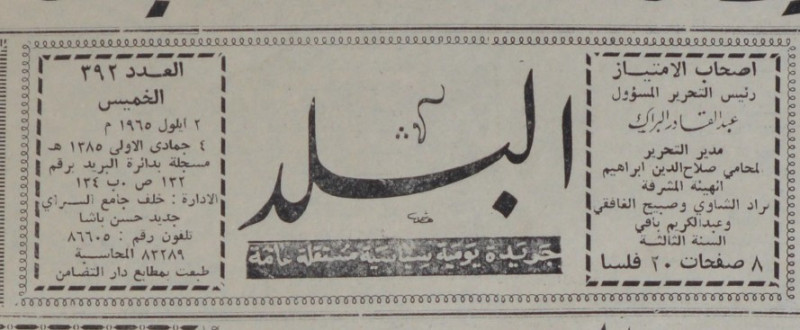 اصحاب الامتياز
رئيس التحرير المسؤول
عبدالقادر البراك
مدير التحرير
لمحامي صلاح الدين ابراهيم
الهيئة المشرفة
نراد الشاوي وصبيح الغافقي
وعبدالكريم باقي
السنة الثالثة
٨ صفحات ٢٠ فلسا
البلد
جريدة يومية سياسية مستقلة عامة
العدد ٣٩٢
الخميس
٢ ايلول ١٩٦٥ م
٤ جمادى الاولى ١٣٨٥ هـ
مسجلة بدائرة البريد برقم
١٣٢ ص ٠ب ١٣٤
الادارة : خلف جامع السراي
جديد حسن باشا
تلفون رقم : ٨٦٦٠٥
٨٣٢٨٩ المحاسبة
طبعت بمطابع دار التضامن